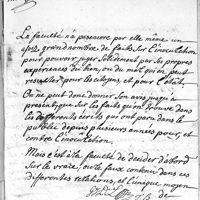 La faculté n'a parcouru par elle même un
assez grand nombre de faits sur l'inoculation
pour pouvoir juger solidement par ses propres
expériences du bien, ou du mal qui en peut
resulter pour les citoyens, et pour l'etat.
On ne peut donc donner son avis jusqu'a
present que sur les faits qu'on trouve dans
les differents écrits qui ont paru dans le
public depuis plusieurs années pour, et
contre l'inoculation.
Mais c'est a la faculté de decider d'abord
sur le vrai, ou le faux contenu dans ces
differentes relations, et l'unique moyen
de